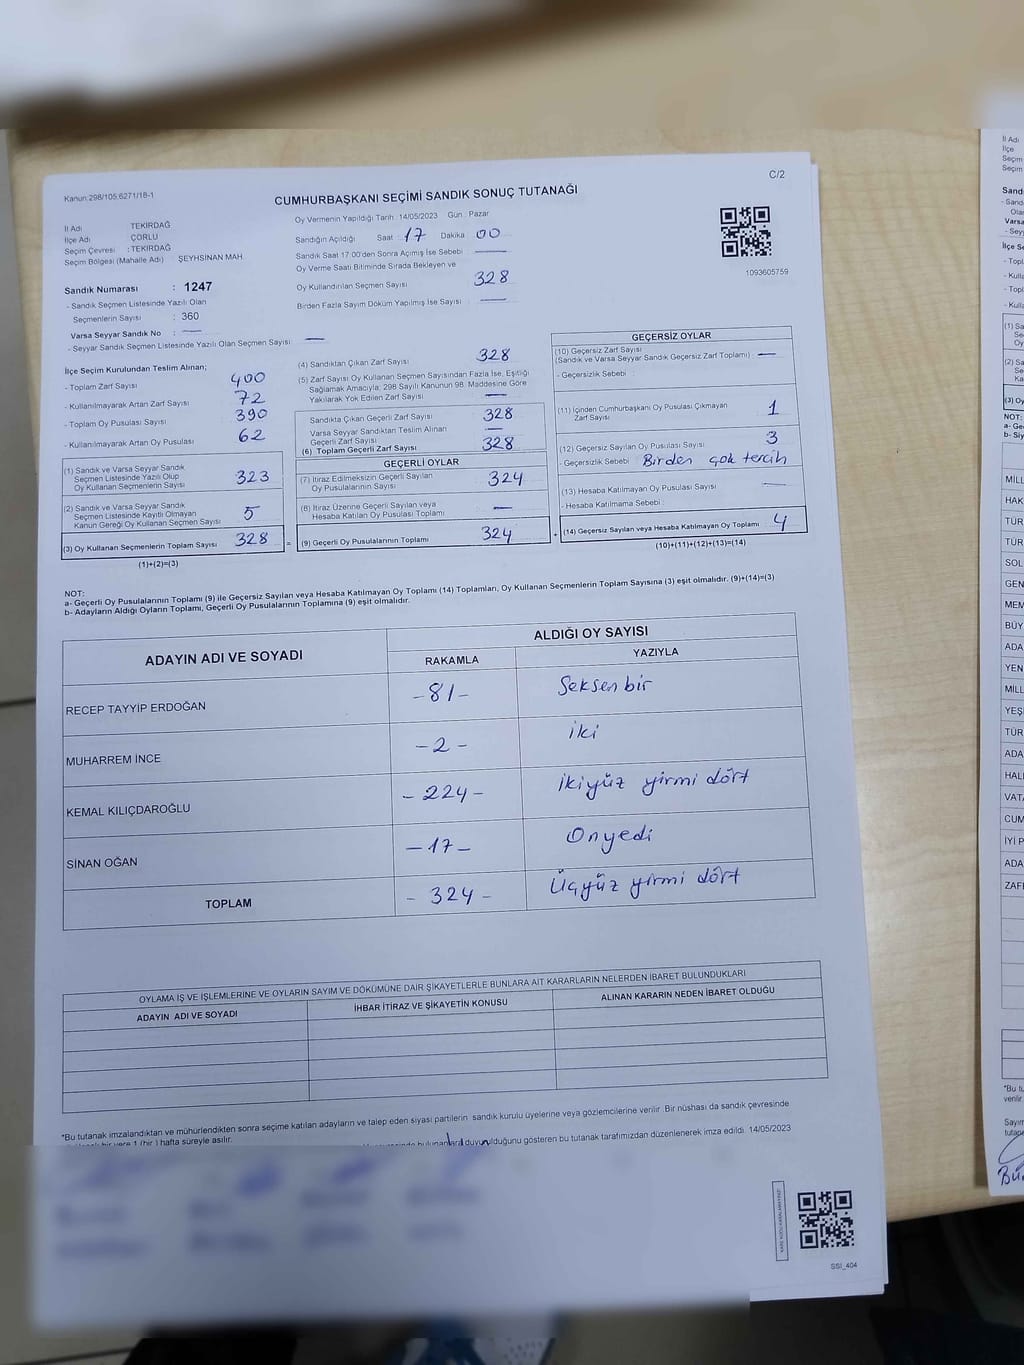 Kanun:298/105.6271/18-1
C/2
CUMHURBAŞKANI SEÇİMİ SANDIK SONUÇ TUTANAĞI
İl Adı TEKİRDAĞ
İlçe Adı ÇORLU
Seçim Çevresi : TEKİRDAĞ
Seçim Bölgesi (Mahalle Adı) : ŞEYHSİNAN MAH
Sandık Numarası : 1247
- Sandık Seçmen Listesinde Yazılı Olan
Seçmenlerin Sayısı : 360
Varsa Seyyar Sandık No : —
- Seyyar Sandık Seçmen Listesinde Yazılı Olan Seçmen Sayısı : —
Oy Vermenin Yapıldığı Tarih 14/05/2023 Gün : Pazar
Sandığın Açıldığı Saat : 17 Dakika 00
Sandık Saat 17:00'den Sonra Açılmış İse Sebebi —
Oy Verme Saati Bitiminde Sırada Bekleyen ve
Oy Kullandırılan Seçmen Sayısı 328
Birden Fazla Sayım Döküm Yapılmış İse Sayısı : —
1093605759
İlçe Seçim Kurulundan Teslim Alınan;
- Toplam Zarf Sayısı 400
- Kullanılmayarak Artan Zarf Sayısı 72
- Toplam Oy Pusulası Sayısı 390
- Kullanılmayarak Artan Oy Pusulası 62
(1) Sandık ve Varsa Seyyar Sandık
Seçmen Listesinde Yazılı Olup
Oy Kullanan Seçmenlerin Sayısı 323
(2) Sandık ve Varsa Seyyar Sandık
Seçmen Listesinde Kayıtlı Olmayan
Kanun Gereği Oy Kullanan Seçmen Sayısı 5
(3) Oy Kullanan Seçmenlerin Toplam Sayısı 328 =
(1)+(2)=(3)
(4) Sandıktan Çıkan Zarf Sayısı 328
(5) Zarf Sayısı Oy Kullanan Seçmen Sayısından Fazla İse, Eşitliği
Sağlamak Amacıyla; 298 Sayılı Kanunun 98. Maddesine Göre
Yakılarak Yok Edilen Zarf Sayısı —
Sandıkta Çıkan Geçerli Zarf Sayısı 328
Varsa Seyyar Sandıktan Teslim Alınan
Geçerli Zarf Sayısı —
(6) Toplam Geçerli Zarf Sayısı 328
GEÇERLİ OYLAR
(7) İtiraz Edilmeksizin Geçerli Sayılan
Oy Pusulalarının Sayısı 324
(8) İtiraz Üzerine Geçerli Sayılan veya
Hesaba Katılan Oy Pusulası Toplamı —
(9) Geçerli Oy Pusulalarının Toplamı 324 +
GEÇERSİZ OYLAR
(10) Geçersiz Zarf Sayısı
(Sandık ve Varsa Seyyar Sandık Geçersiz Zarf Toplamı) : —
- Geçersizlik Sebebi :
(11) İçinden Cumhurbaşkanı Oy Pusulası Çıkmayan
Zarf Sayısı 1
(12) Geçersiz Sayılan Oy Pusulası Sayısı 3
- Geçersizlik Sebebi : Birden çok tercih
(13) Hesaba Katılmayan Oy Pusulası Sayısı —
- Hesaba Katılmama Sebebi :
(14) Geçersiz Sayılan veya Hesaba Katılmayan Oy Toplamı 4
(10)+(11)+(12)+(13)=(14)
NOT:
a- Geçerli Oy Pusulalarının Toplamı (9) ile Geçersiz Sayılan veya Hesaba Katılmayan Oy Toplamı (14) Toplamları, Oy Kullanan Seçmenlerin Toplam Sayısına (3) eşit olmalıdır. (9)+(14)=(3)
b- Adayların Aldığı Oyların Toplamı, Geçerli Oy Pusulalarının Toplamına (9) eşit olmalıdır.
ADAYIN ADI VE SOYADI
ALDIĞI OY SAYISI
RAKAMLA YAZIYLA
RECEP TAYYİP ERDOĞAN -81- Seksen bir
MUHARREM İNCE -2- iki
KEMAL KILIÇDAROĞLU -224- İkiyüz yirmi dört
SİNAN OĞAN -17- Onyedi
TOPLAM -324- Üçyüz yirmi dört
OYLAMA İŞ VE İŞLEMLERİNE VE OYLARIN SAYIM VE DÖKÜMÜNE DAİR ŞİKAYETLERLE BUNLARA AİT KARARLARIN NELERDEN İBARET BULUNDUKLARI
ADAYIN ADI VE SOYADI İHBAR İTİRAZ VE ŞİKAYETİN KONUSU ALINAN KARARIN NEDEN İBARET OLDUĞU
*Bu tutanak imzalandıktan ve mühürlendikten sonra seçime katılan adayların ve talep eden siyasi partilerin sandık kurulu üyelerine veya gözlemcilerine verilir. Bir nüshası da sandık çevresinde
bir yere 1 (bir) hafta süreyle asılır.
duyurulduğunu gösteren bu tutanak tarafımızdan düzenlenerek imza edildi. 14/05/2023
SSİ_404
İl Adı
İlçe
Seçim
Seçim
Sand
Varsa
İlçe Se
NOT:
MİLL
HAK
TÜR
TÜR
SOL
GEN
MEM
BÜY
ADA
YEN
MİLL
YEŞ
TÜR
ADA
HAL
VATA
CUM
İYİ P
ADA
ZAF
*Bu tu
verilir
Sayım
tutan